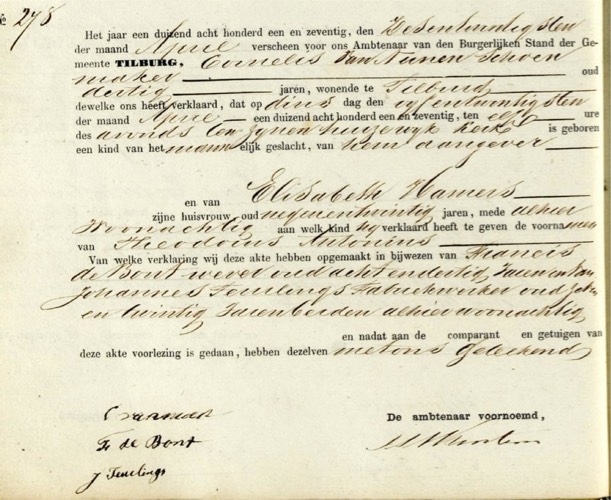 № 278
Het jaar een duizend acht honderd een en zeventig, den Zesentwintigsten
der maand April verscheen voor ons Ambtenaar van den Burgerlijken Stand der Ge-
meente TILBURG, Cornelis van Nunen Schoen
maker oud
dertig jaren, wonende te Tilburg
dewelke ons heeft verklaard, dat op dins dag den vyfentwintigsten
der maand April een duizend acht honderd een en zeventig, ten elf ure
des avonds ten zynen huize wyk Kerk is geboren
een kind van het mann elijk geslacht, van hem aangever
en van Elisabeth Hamers
zijne huisvrouw, oud negenentwintig jaren, mede alhier
Woonachtig aan welk kind hy verklaard heeft te geven de voornamen
van Theodorus Antonius
Van welke verklaring wij deze akte hebben opgemaakt in bijwezen van Francis
de Bont wever oud achtendertig Jaren en van
Johannes Feurlings Fabriekwerker oud zeven
en twintig Jaren beiden alhier woonachtig
en nadat aan de comparant en getuigen van
deze akte voorlezing is gedaan, hebben dezelven met ons Geteekend
De ambtenaar voornoemd,
F. de Bont
J Feurlings